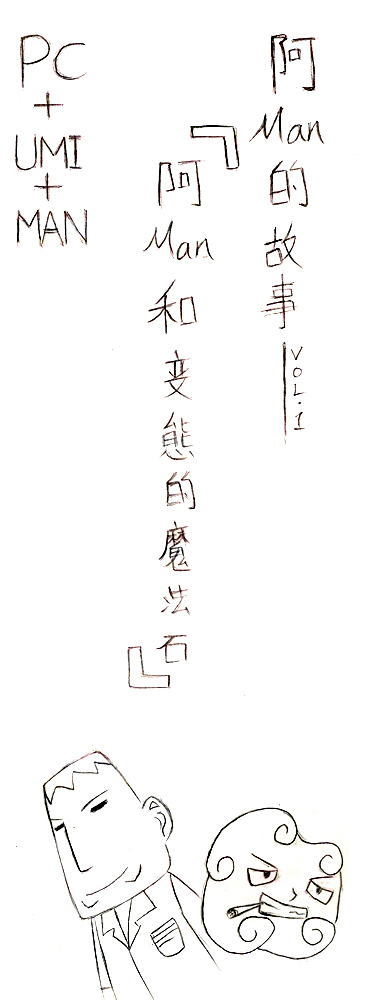 阿Man的故事 VOL.1
『阿Man和变態的魔法石』
PC
+
UMI
+
MAN